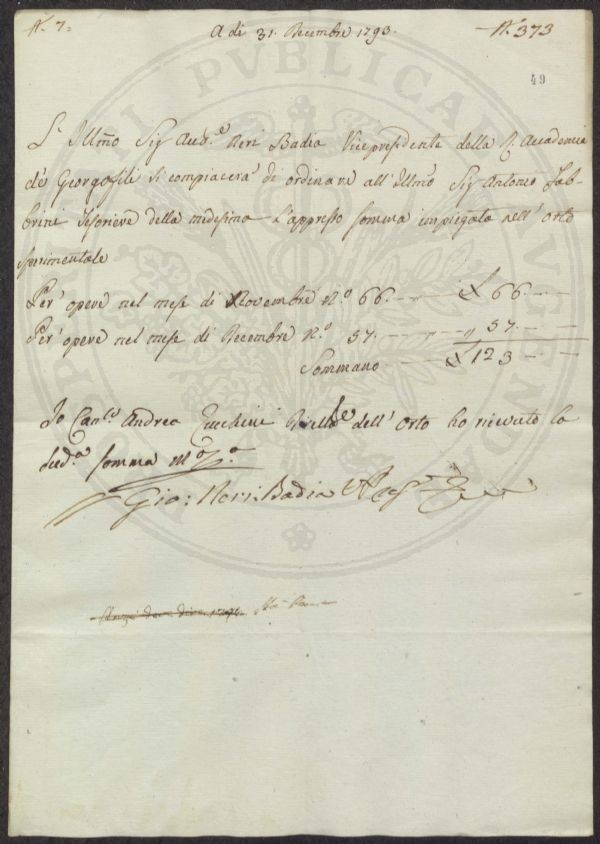 N. 7.
A dì 31. Decembre 1793.
N. 373
49
L' Illmo Sig Aud.e Neri Badia Vicepresidente della R. Accademia
de' Georgofili si compiacerà di ordinare all' Illmo Sig Antonio Fab-
brini Tesoriere della medesima l'appresso somma impiegata nell' Orto
sperimentale
Per' opere nel mese di Novembre N.o 66. £ 66.
Per' opere nel mese di Decembre N.o 57. " 57.
Sommano £ 123
Io Can.co Andrea Zucchini dell' Orto ho ricevuto la
sud.a somma
Gio: Neri Badia
PVBLICAE